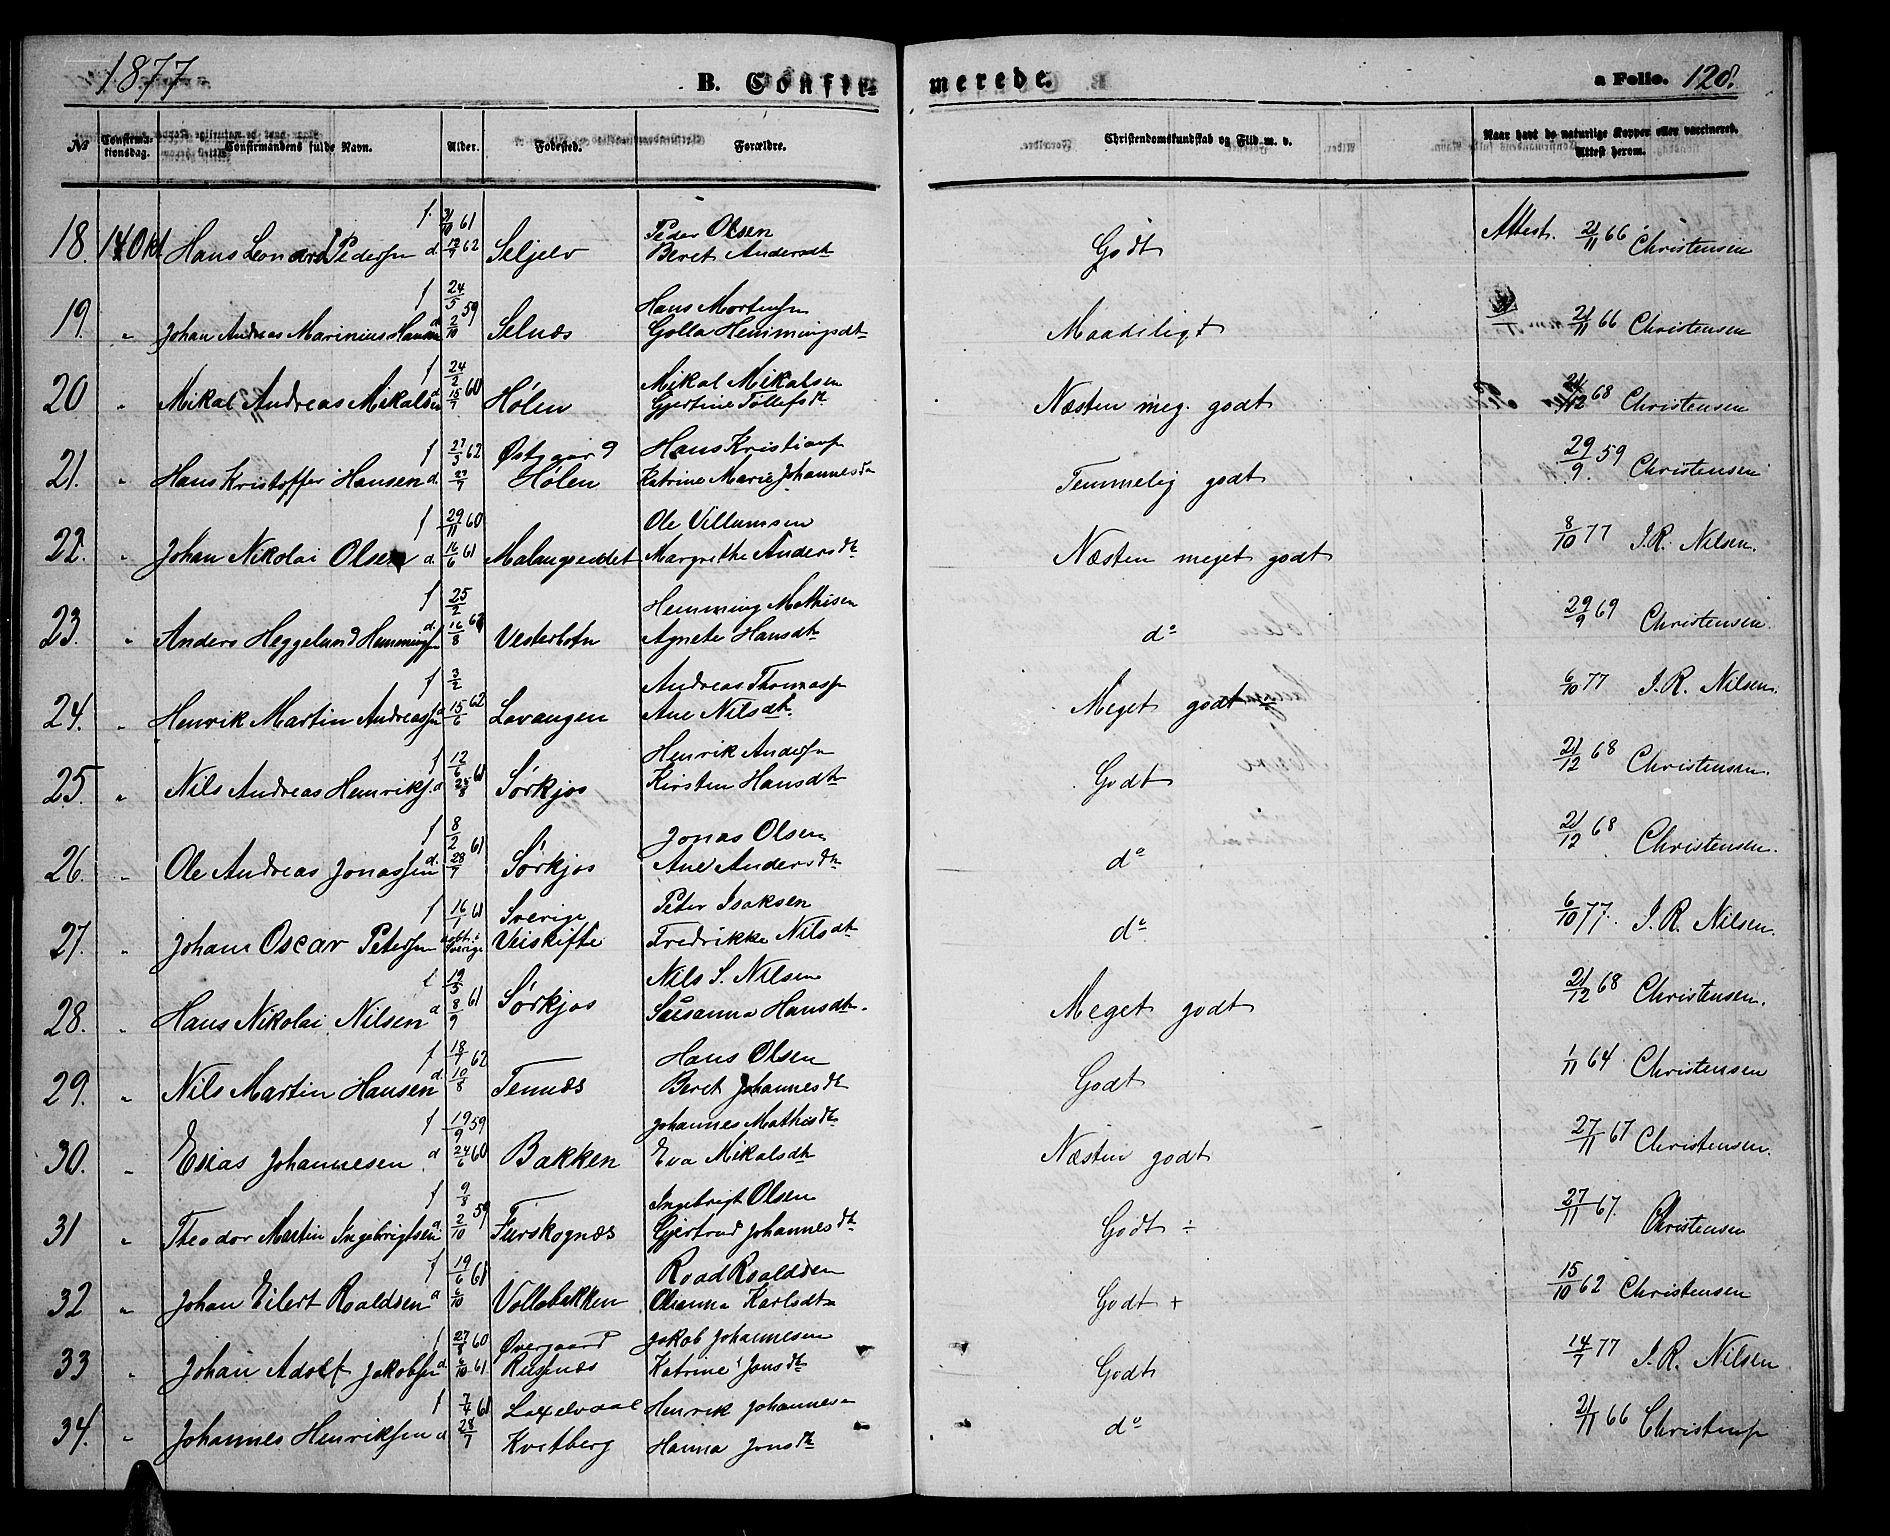 1877
B. Confirmerede.
a Folio. 128.
No Confirmationsdag. Confirmandens fulde Navn. Alder. Fødested. Forældre. Christendomskundskab og Flid m. v. Naar havt de naturlige Kopper eller vaccineret. Attest herom.
f. 31/10 61 Peder Olsen
18. 14 Okt Hans Leonard Pedersen d. 62 Seljelv Beret Andersdt Godt Attest. 21/11 66 Christensen
f 24/5 59 Hans Mortensen
19. " Johan Andreas Marinius Hansen d. 2/10 Selnæs Golla Hemmingsdt Maadeligt 21/11 66 Christensen
f 24/2 60 Mikal Mikalsen
20 " Mikal Andreas Mikalsen d 15/7 Hølen Gjertine Tollefsdt Næsten meg. godt 21/12 68 Christensen
f 27/3 62 Østgaard Hans Kristians
21. " Hans Kristoffer Hansen d. 27/7 Hølen Katrine Marie Johannesdt Temmelig godt 29/9 59 Christensen
f 29/11 60 Ole Villumsen
22. " Johan Nikolai Olsen d. 16/6 61 Malangseidet Margrethe Andersdt Næsten meget godt 8/10 77 I. R. Nilsen.
f 25/2 Hemming Mathisen
23. " Anders Heggelund Hemmings d. 16/8 Vesterbotn Agnete Hansdt do 29/9 69 Christensen.
f 3/2 62 Andreas Thomass
24. " Henrik Martin Andreassen d 15/6 Lavangen Ane Nilsdt. Meget godt 6/10 77 I. R. Nilsen.
f 12/6 61 Henrik Andersen
25. " Nils Andreas Henriks. d 25/8 Sørkjos Kirsten Hansdt Godt 21/12 68 Christensen.
f 8/2 61 Jonas Olsen
26. " Ole Andreas Jonassen d. 28/7 Sørkjos Ane Andersdt do 21/12 68 Christensen.
f 16/1 61 Sverige Peter Isaksen
27. " Johan Oscar Petersen døbt i Sverige Veiskifte Fredrikke Nilsdt do 6/10 77. I. R. Nilsen.
f. 19/5 61 Nils S. Nilsen
28. " Hans Nikolai Nilsen d 8/9 Sørkjos Susanna Hansdt. Meget godt 21/12 68 Christensen.
f 18/7 62 Hans Olsen
29. " Nils Martin Hansen d. 10/8 Tennæs Beret Johannesdt Godt 1/11 64 Christensen
f 19/9 59 Johannes Mathisdt
30. " Esias Johannesen d 24/6 60 Bakken Eva Mikalsdt Næsten godt 27/11 67 Christensen.
f 9/8 59 Ingebrigt Olsen
31 " Theodor Martin Ingebrigtsen d. 2/10 Furskognæs Gjertrud Johannesdt Godt ÷ 27/11 67. Christensen
f 19/6 61 Roald Roaldsen
32 " Johan Eilert Roaldsen d 6/10 Vollabakken Ohanna Karlsdt Godt + 15/10 62 Christensen
f 27/8 60 Øvergaard Jakob Johannesen
33 " Johan Adolf Jakobsen d 6/10 61 Russnæs Katrine Jonsdt Godt 14/7 77 I. R. Nilsen
f 7/4 61 Laxelvdal Henrik Johannesen
34. " Johannes Henriksen d 28/7 Kvitberg Hanna Jonsdt do 21/11 66 Christensen